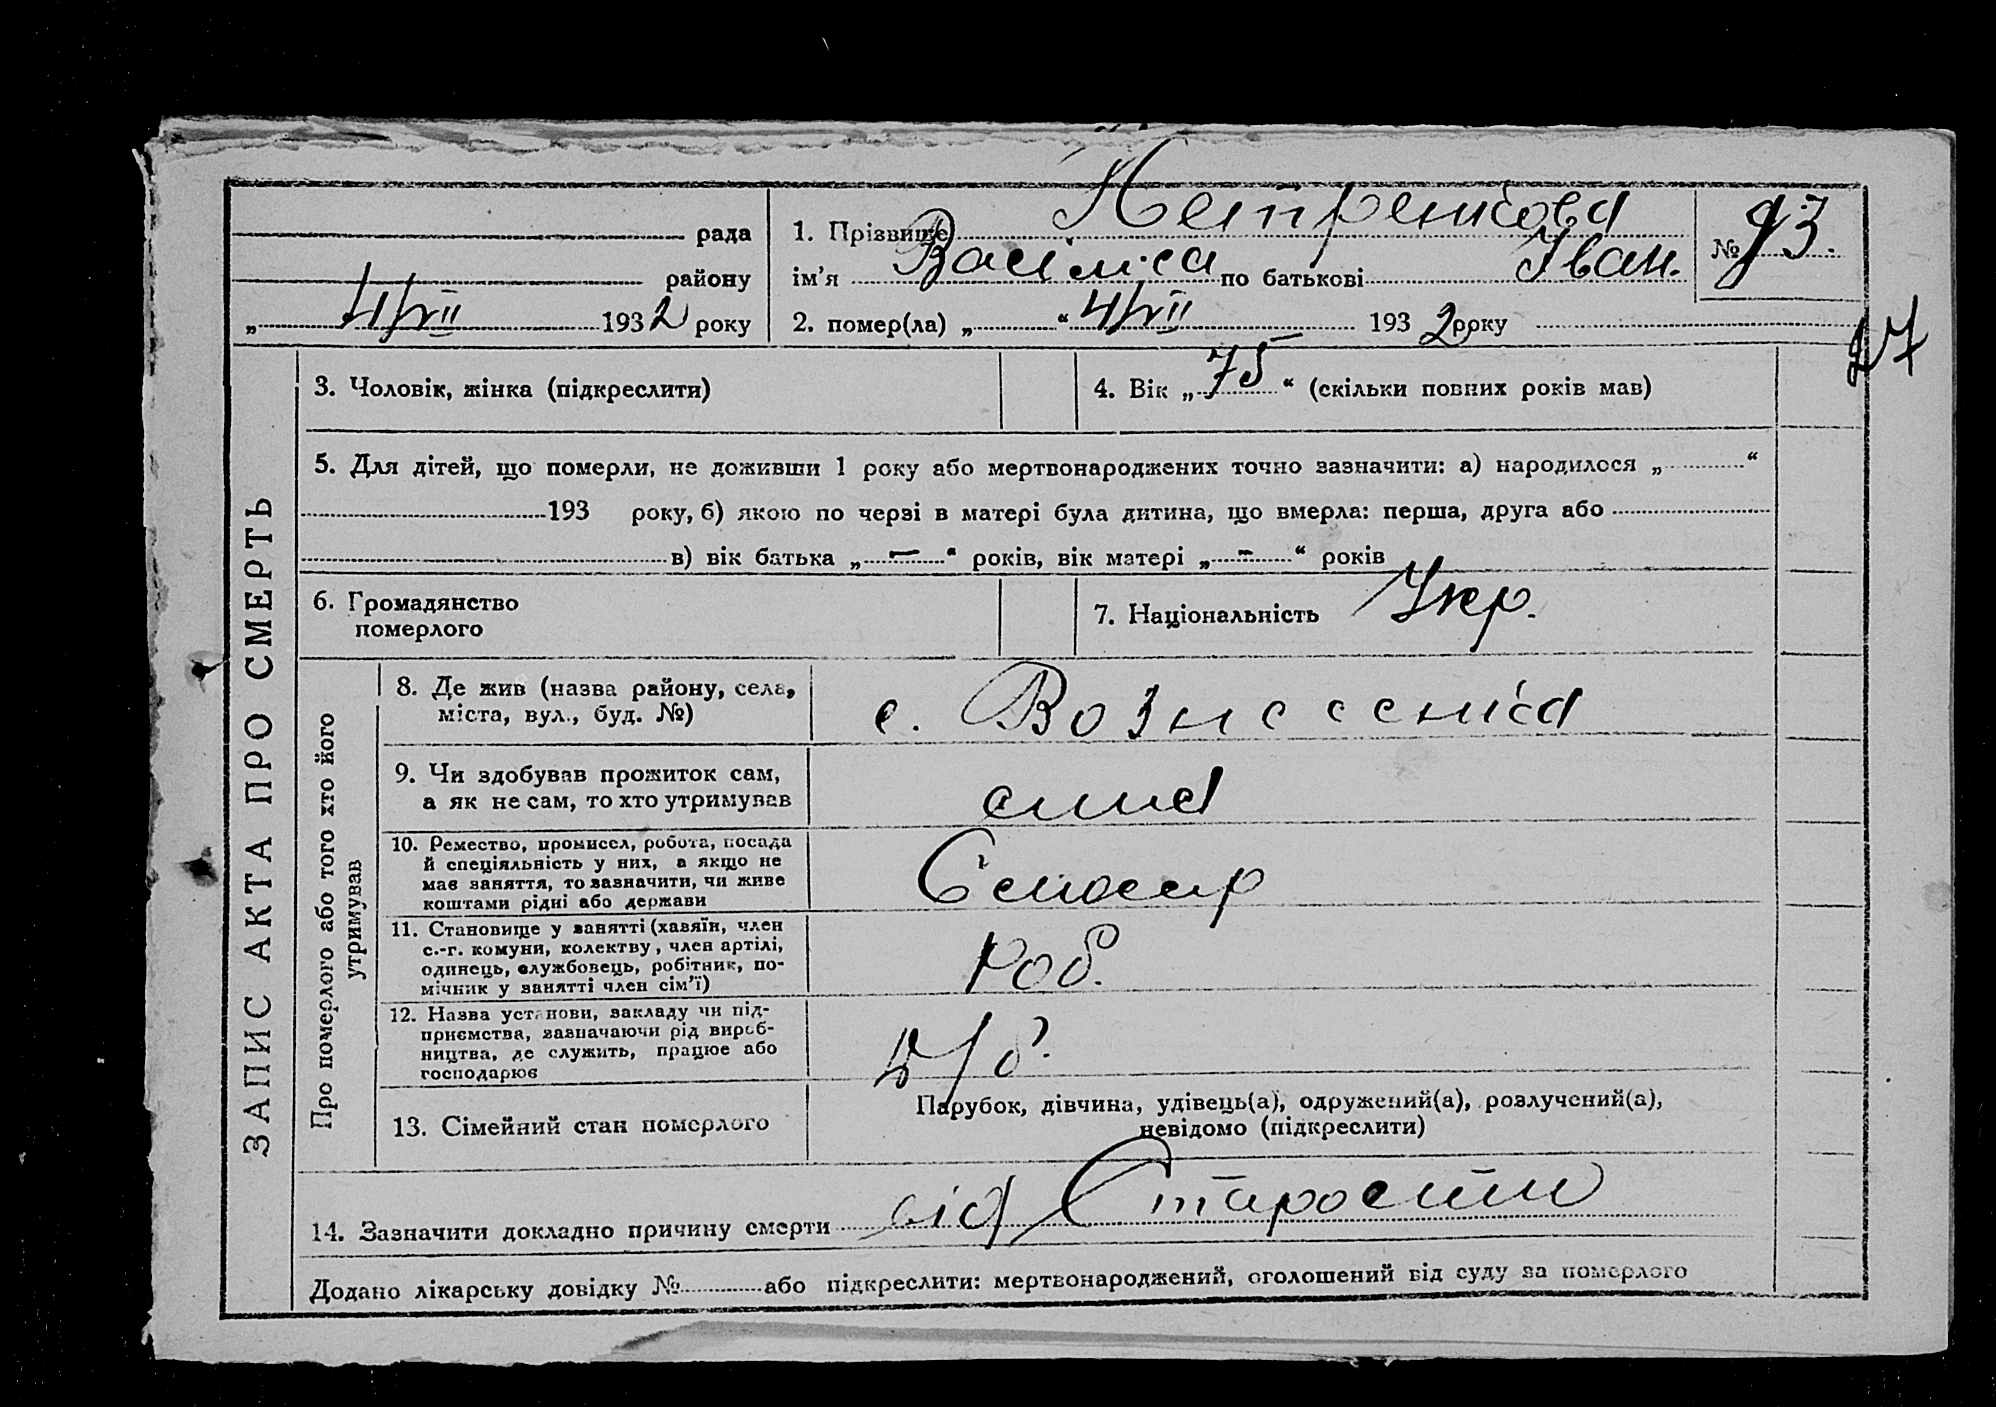 Нетренкова
рада
району
„ 4/VII 1932 року
1. Прізвище
ім’я Василиса по батькові Іван.
2. помер(ла) „ “ 4/VII 1932 року
№ 93.
ЗАПИС АКТА ПРО СМЕРТЬ
3. Чоловік, жінка (підкреслити)
4. Вік „ 75 “ (скільки повних років мав)
5. Для дітей, що померли, не доживши 1 року або мертвонароджених точно зазначити: а) народилося „ “
193 року, б) якою по черзі в матері була дитина, що вмерла: перша, друга або
в) вік батька „ — “ років, вік матері „ - “ років
6. Громадянство
померлого
7. Національність Укр.
Про померлого або того хто його
утримував
8. Де жив (назва району, села,
міста, вул., буд. №)
с. Вознесеніа
9. Чи здобував прожиток сам,
а як не сам, то хто утримував
10. Ремество, промисел, робота, посада
й спеціяльність у них, а якщо не
має заняття, то зазначити, чи живе
коштами рідні або держави
11. Становище у занятті (хазяїн, член
с.-г. комуни, колективу, член артілі,
одинець, службовець, робітник, по-
мічник у занятті член сім’ї)
роб.
12. Назва установи, закладу чи під-
приємства, зазначаючи рід вироб-
ництва, де служить, працює або
господарює
13. Сімейний стан померлого
Парубок, дівчина, удівець(а), одружений(а), розлучений(а),
невідомо (підкреслити)
14. Зазначити докладно причину смерти від Старости
Додано лікарську довідку № або підкреслити: мертвонароджений, оголошений від суду за померлого